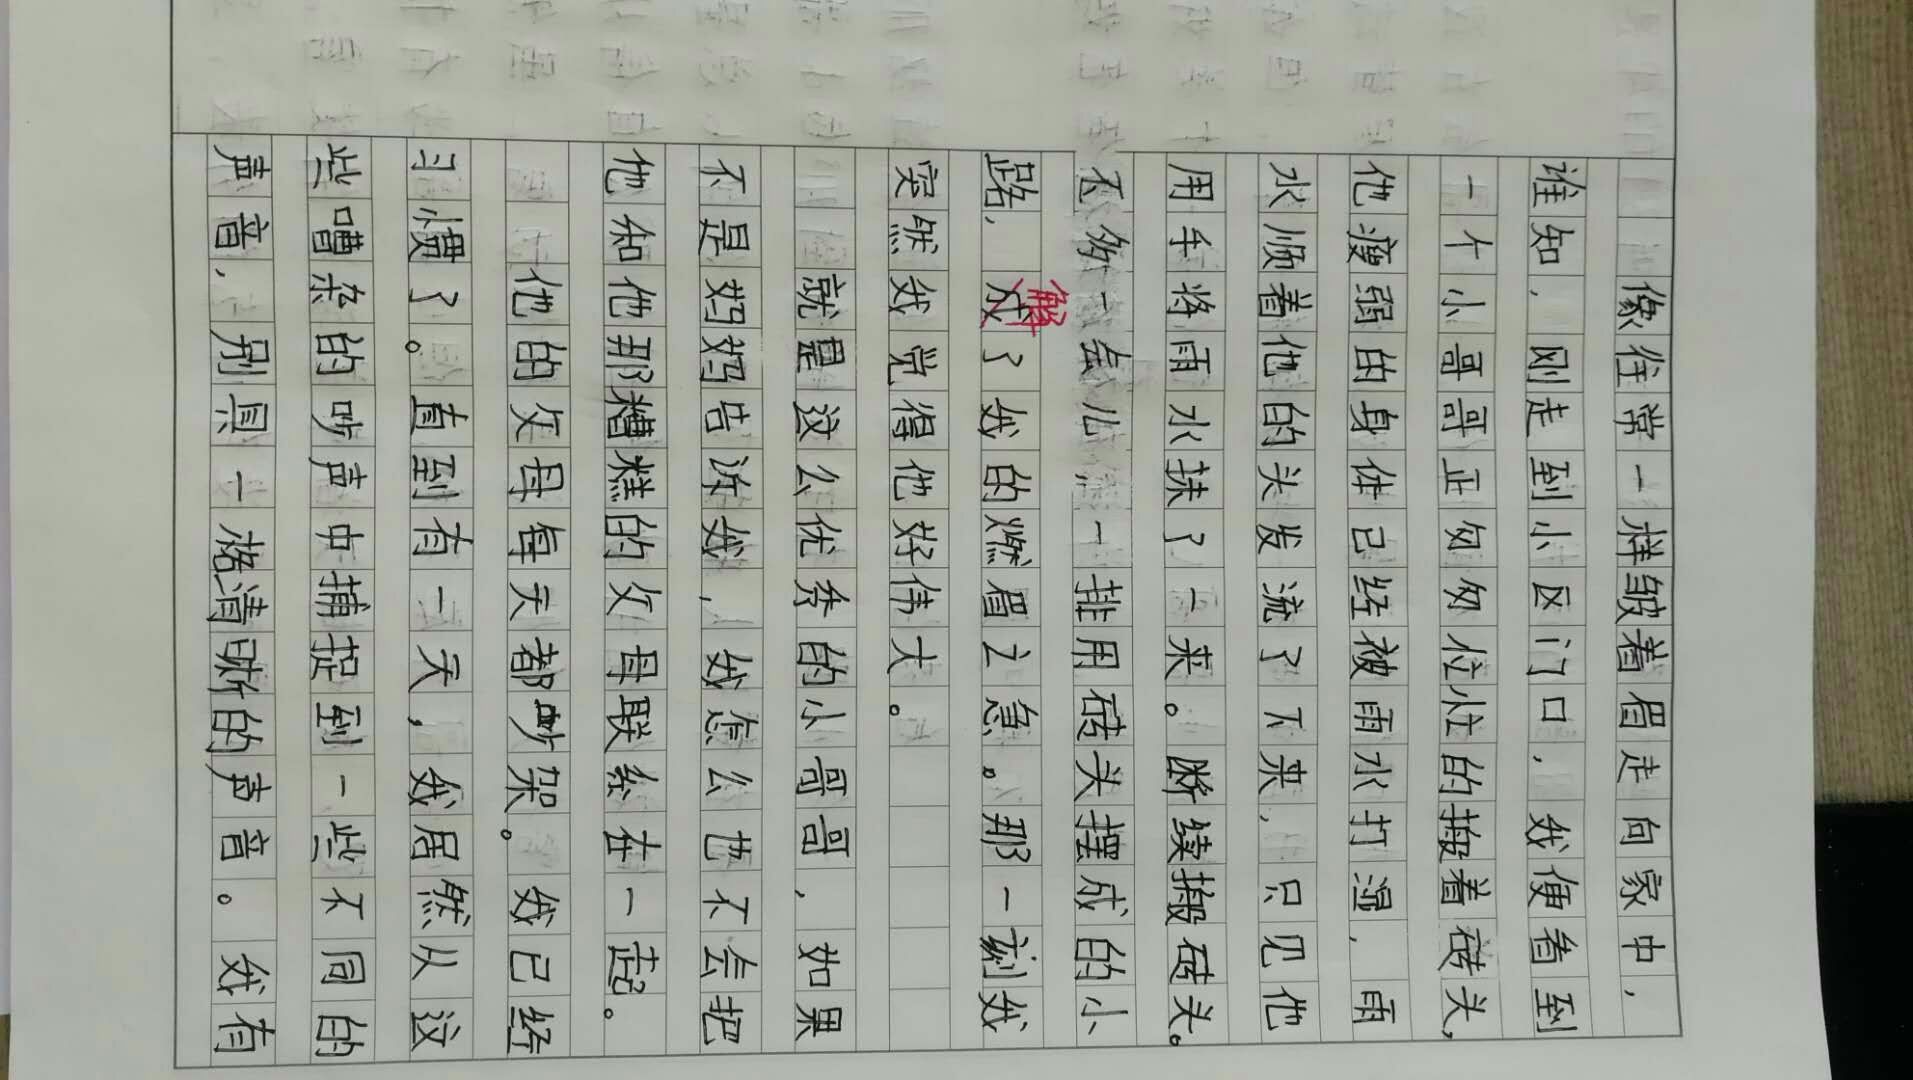 像往常一样皱着眉走向家中，
谁知，刚走到小区门口，我便看到
一个小哥哥正匆匆忙忙的搬着砖头，
他瘦弱的身体已经被雨水打湿，雨
水顺着他的头发流了下来，只见他
用手将雨水抹了一来。断续搬砖头。
不多一会儿一排用砖头摆成的小
路，成解了我的燃眉之急。那一刻我
突然我觉得他好伟大。
就是这么优秀的小哥哥，如果
不是妈妈告诉我，我怎么也不会把
他和他那糟糕的父母联系在一起。
他的父母每天都吵架。我已经
习惯了。直到有一天，我居然从这
些嘈杂的吵声中捕捉到一些不同的
声音，别具一格清晰的声音。我有